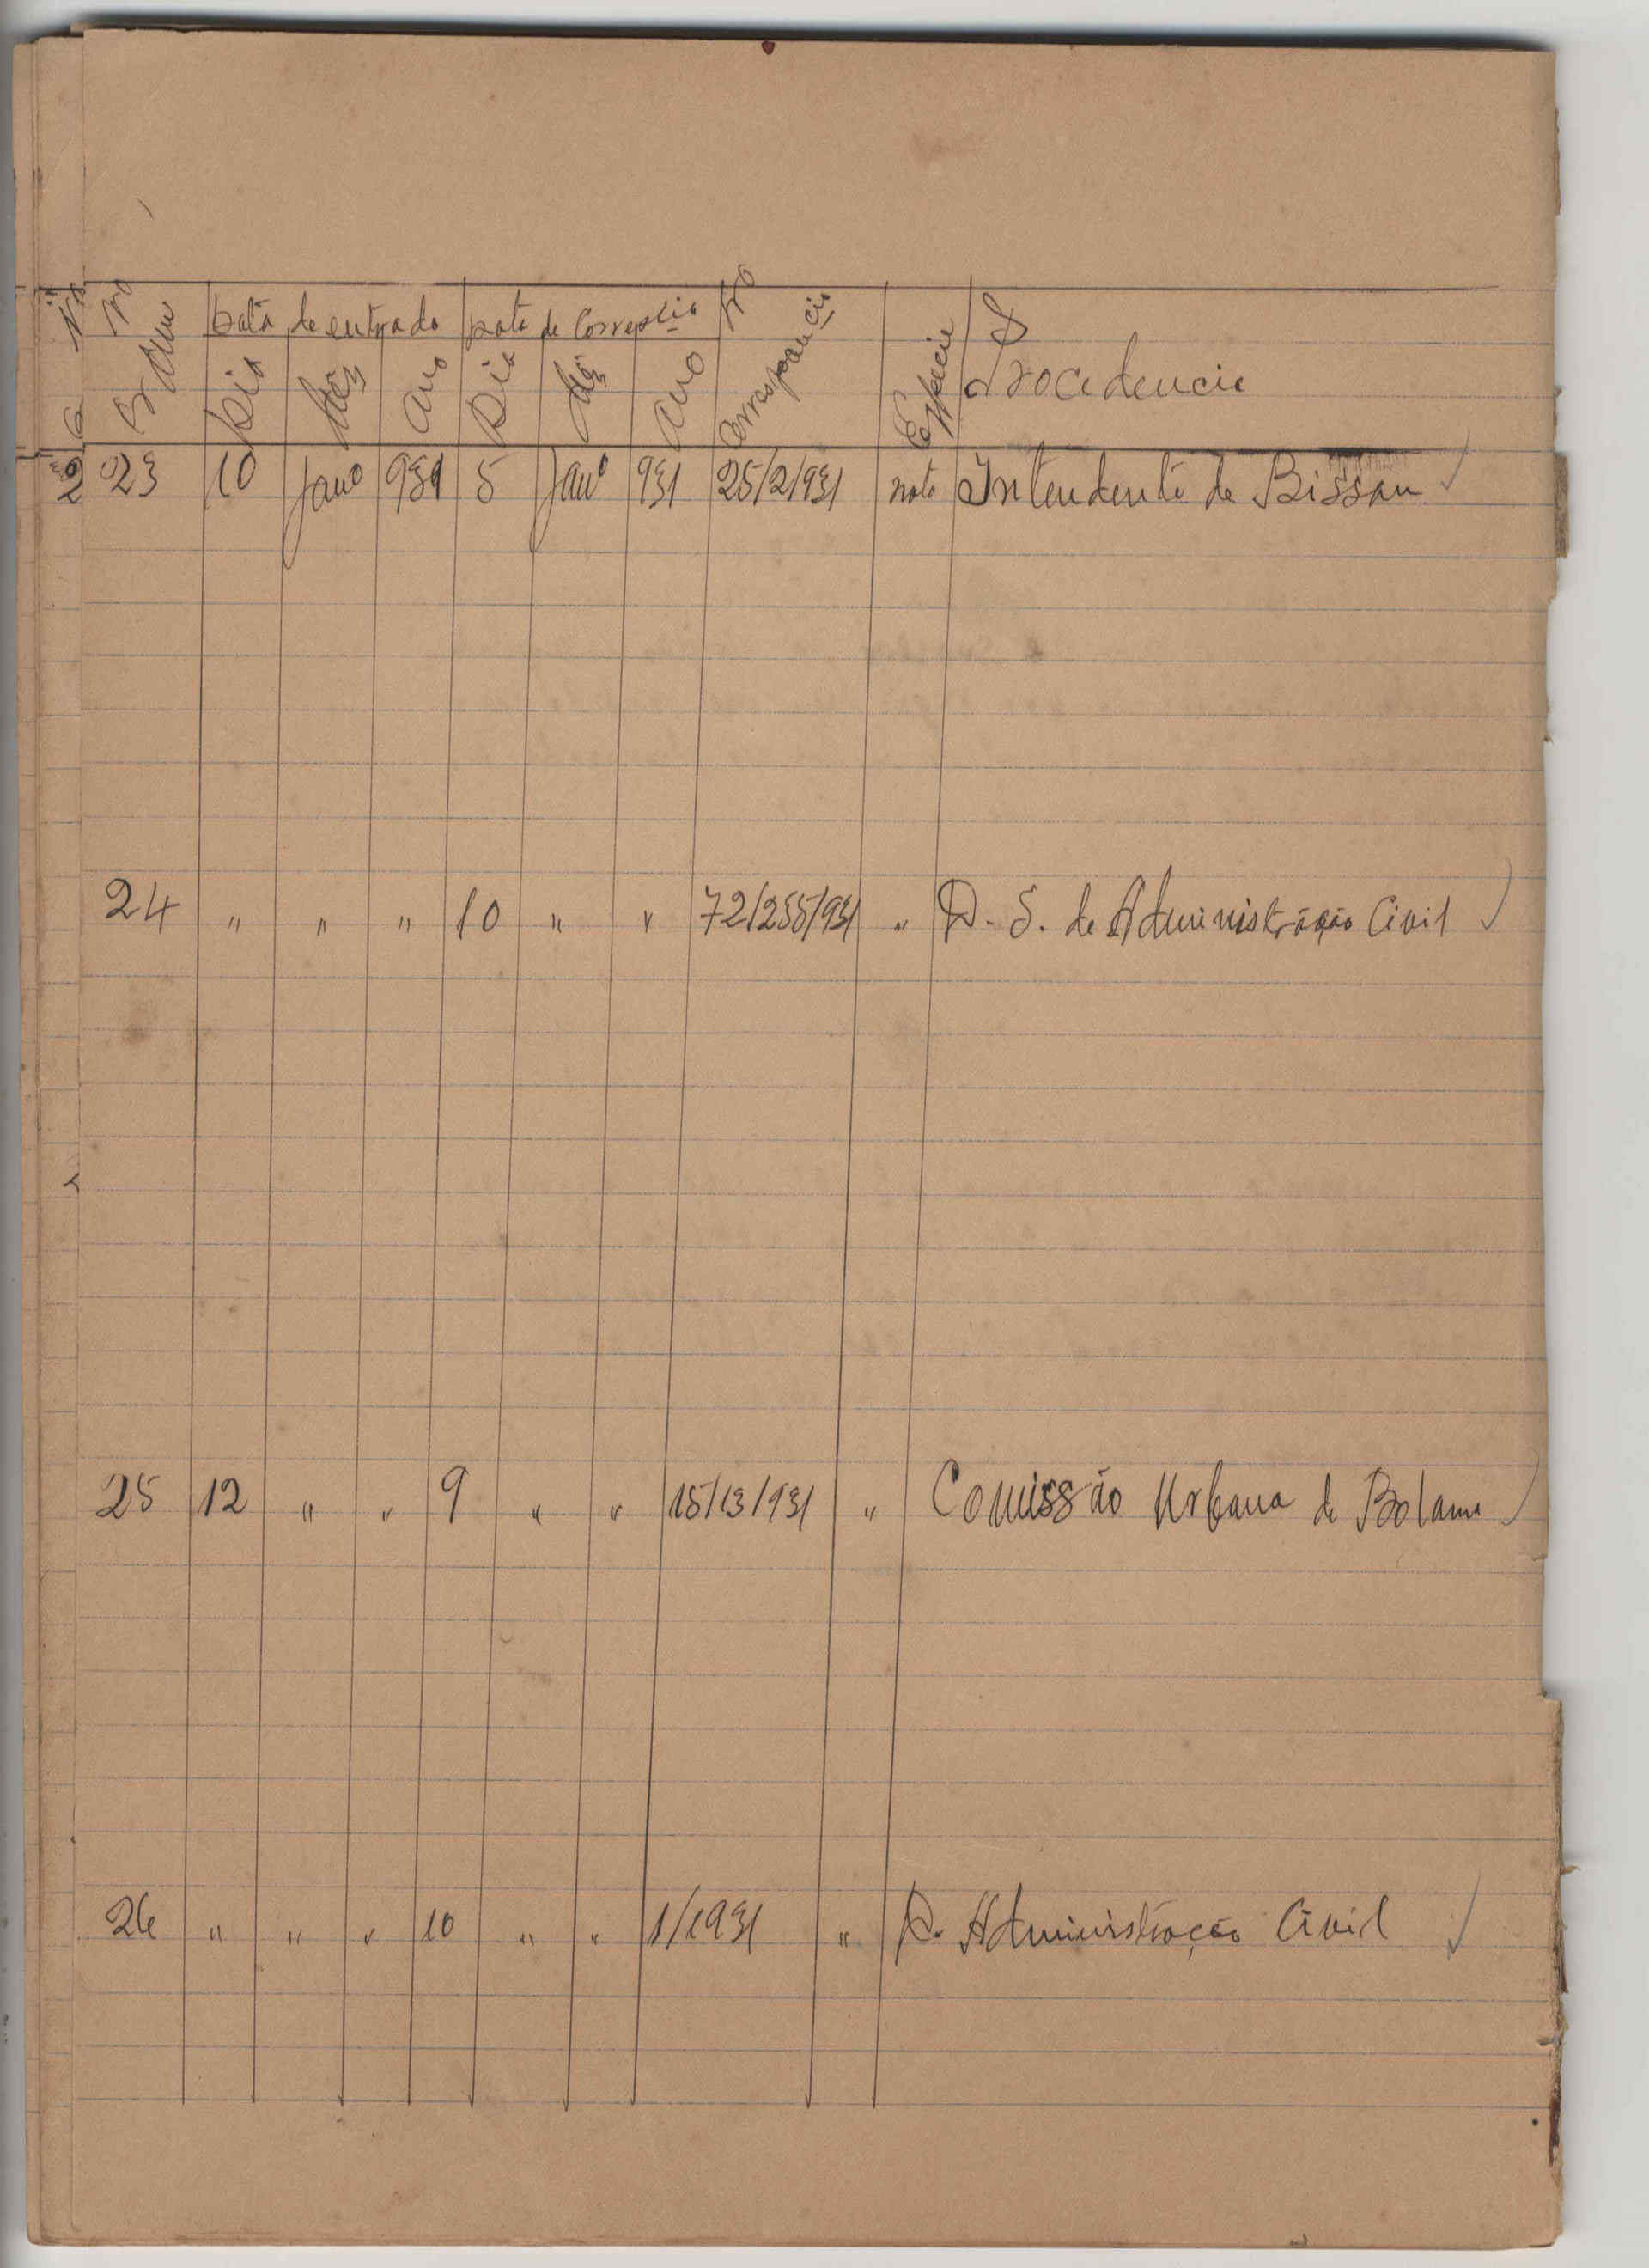 Nº Ordem | Data de entrada | Data de Correspcia | Nº Correspoancia | Especie | Procedencia
Dia | Mês | Ano | Dia | Mês | Ano
23 | 10 | Janº | 931 | 5 | Janº | 931 | 25/2/931 | nota | Intendente de Bissau
24 | " | " | " | 10 | " | " | 72/255/931 | " | D. S. de Administração Civil
25 | 12 | " | " | 9 | " | " | 15/13/931 | " | Comissão Urbana de Bolama
26 | " | " | " | 10 | " | " | 1/1931 | " | D. Administração Civil